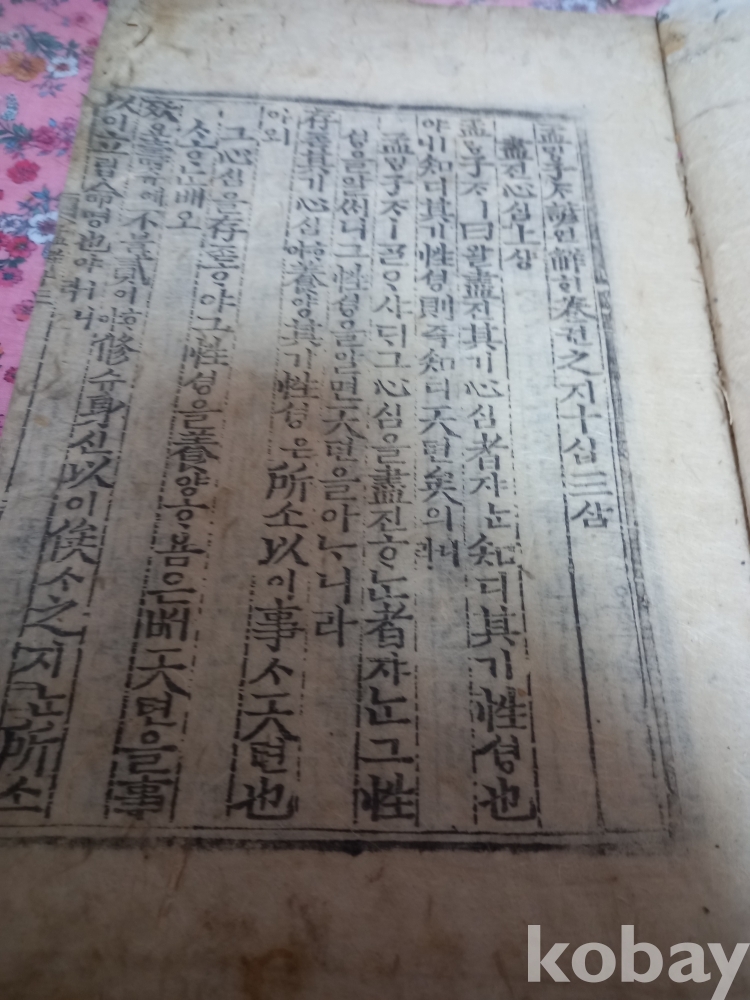 孟ᄆᆡᆼ子ᄌᆞ諺언解ᄒᆡ卷권之지十십三삼
盡진心심上샹
孟ᄆᆡᆼ子ᄌᆞㅣ曰왈盡진其기心심者쟈ᄂᆞᆫ知디其기性셩也
야ㅣ니知디其기性셩則즉知디天텬矣의니라
孟ᄆᆡᆼ子ᄌᆞㅣᄀᆞᆯᄋᆞ샤ᄃᆡ그心심을盡진ᄒᆞᄂᆞᆫ者쟈ᄂᆞᆫ그性
셩을알써니그性셩을알면天텬을아ᄂᆞ니라
存존其기心심ᄒᆞ야養양其기性셩은所소以이事ᄉᆞ天텬也
야ㅣ오
그心심을存존ᄒᆞ야그性셩을養양ᄒᆞ욤은ᄡᅥ天텬을事
ᄉᆞᄒᆞᄂᆞᆫ배오
殀요壽슈에不블貳이ᄒᆞ야修슈身신以이俟ᄉᆞ之지ᄂᆞᆫ所소
以이立립命명也야ㅣ니라
kobay